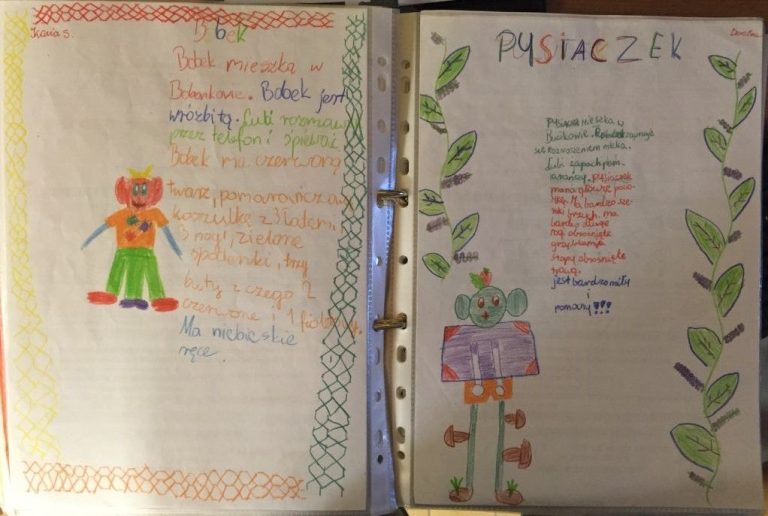 Kasia S.
Bobek
Bobek mieszka w
Bobankowie. Bobek jest
wróżbitą. Lubi rozmawiać
przez telefon i śpiewać.
Bobek ma czerwoną
twarz, pomarańczową
koszulkę z 3 łatami,
3 nogi, zielone
spodenki, trzy
buty z czego 2
czerwone i 1 fioletowy.
Ma niebieskie
ręce.
PYSIACZEK
mieszka w
się roznoszeniem mleka.
Lubi zapach pom
arańczy. Pysiaczek
ma na głowie pió
Ma bardzo sze
roki brzuch. ma
bardzo długie
nogi obrośnięte
grzybkami a
stopy obrośnięte
trawą.
jest bardzo miły
i
pomocny!!!